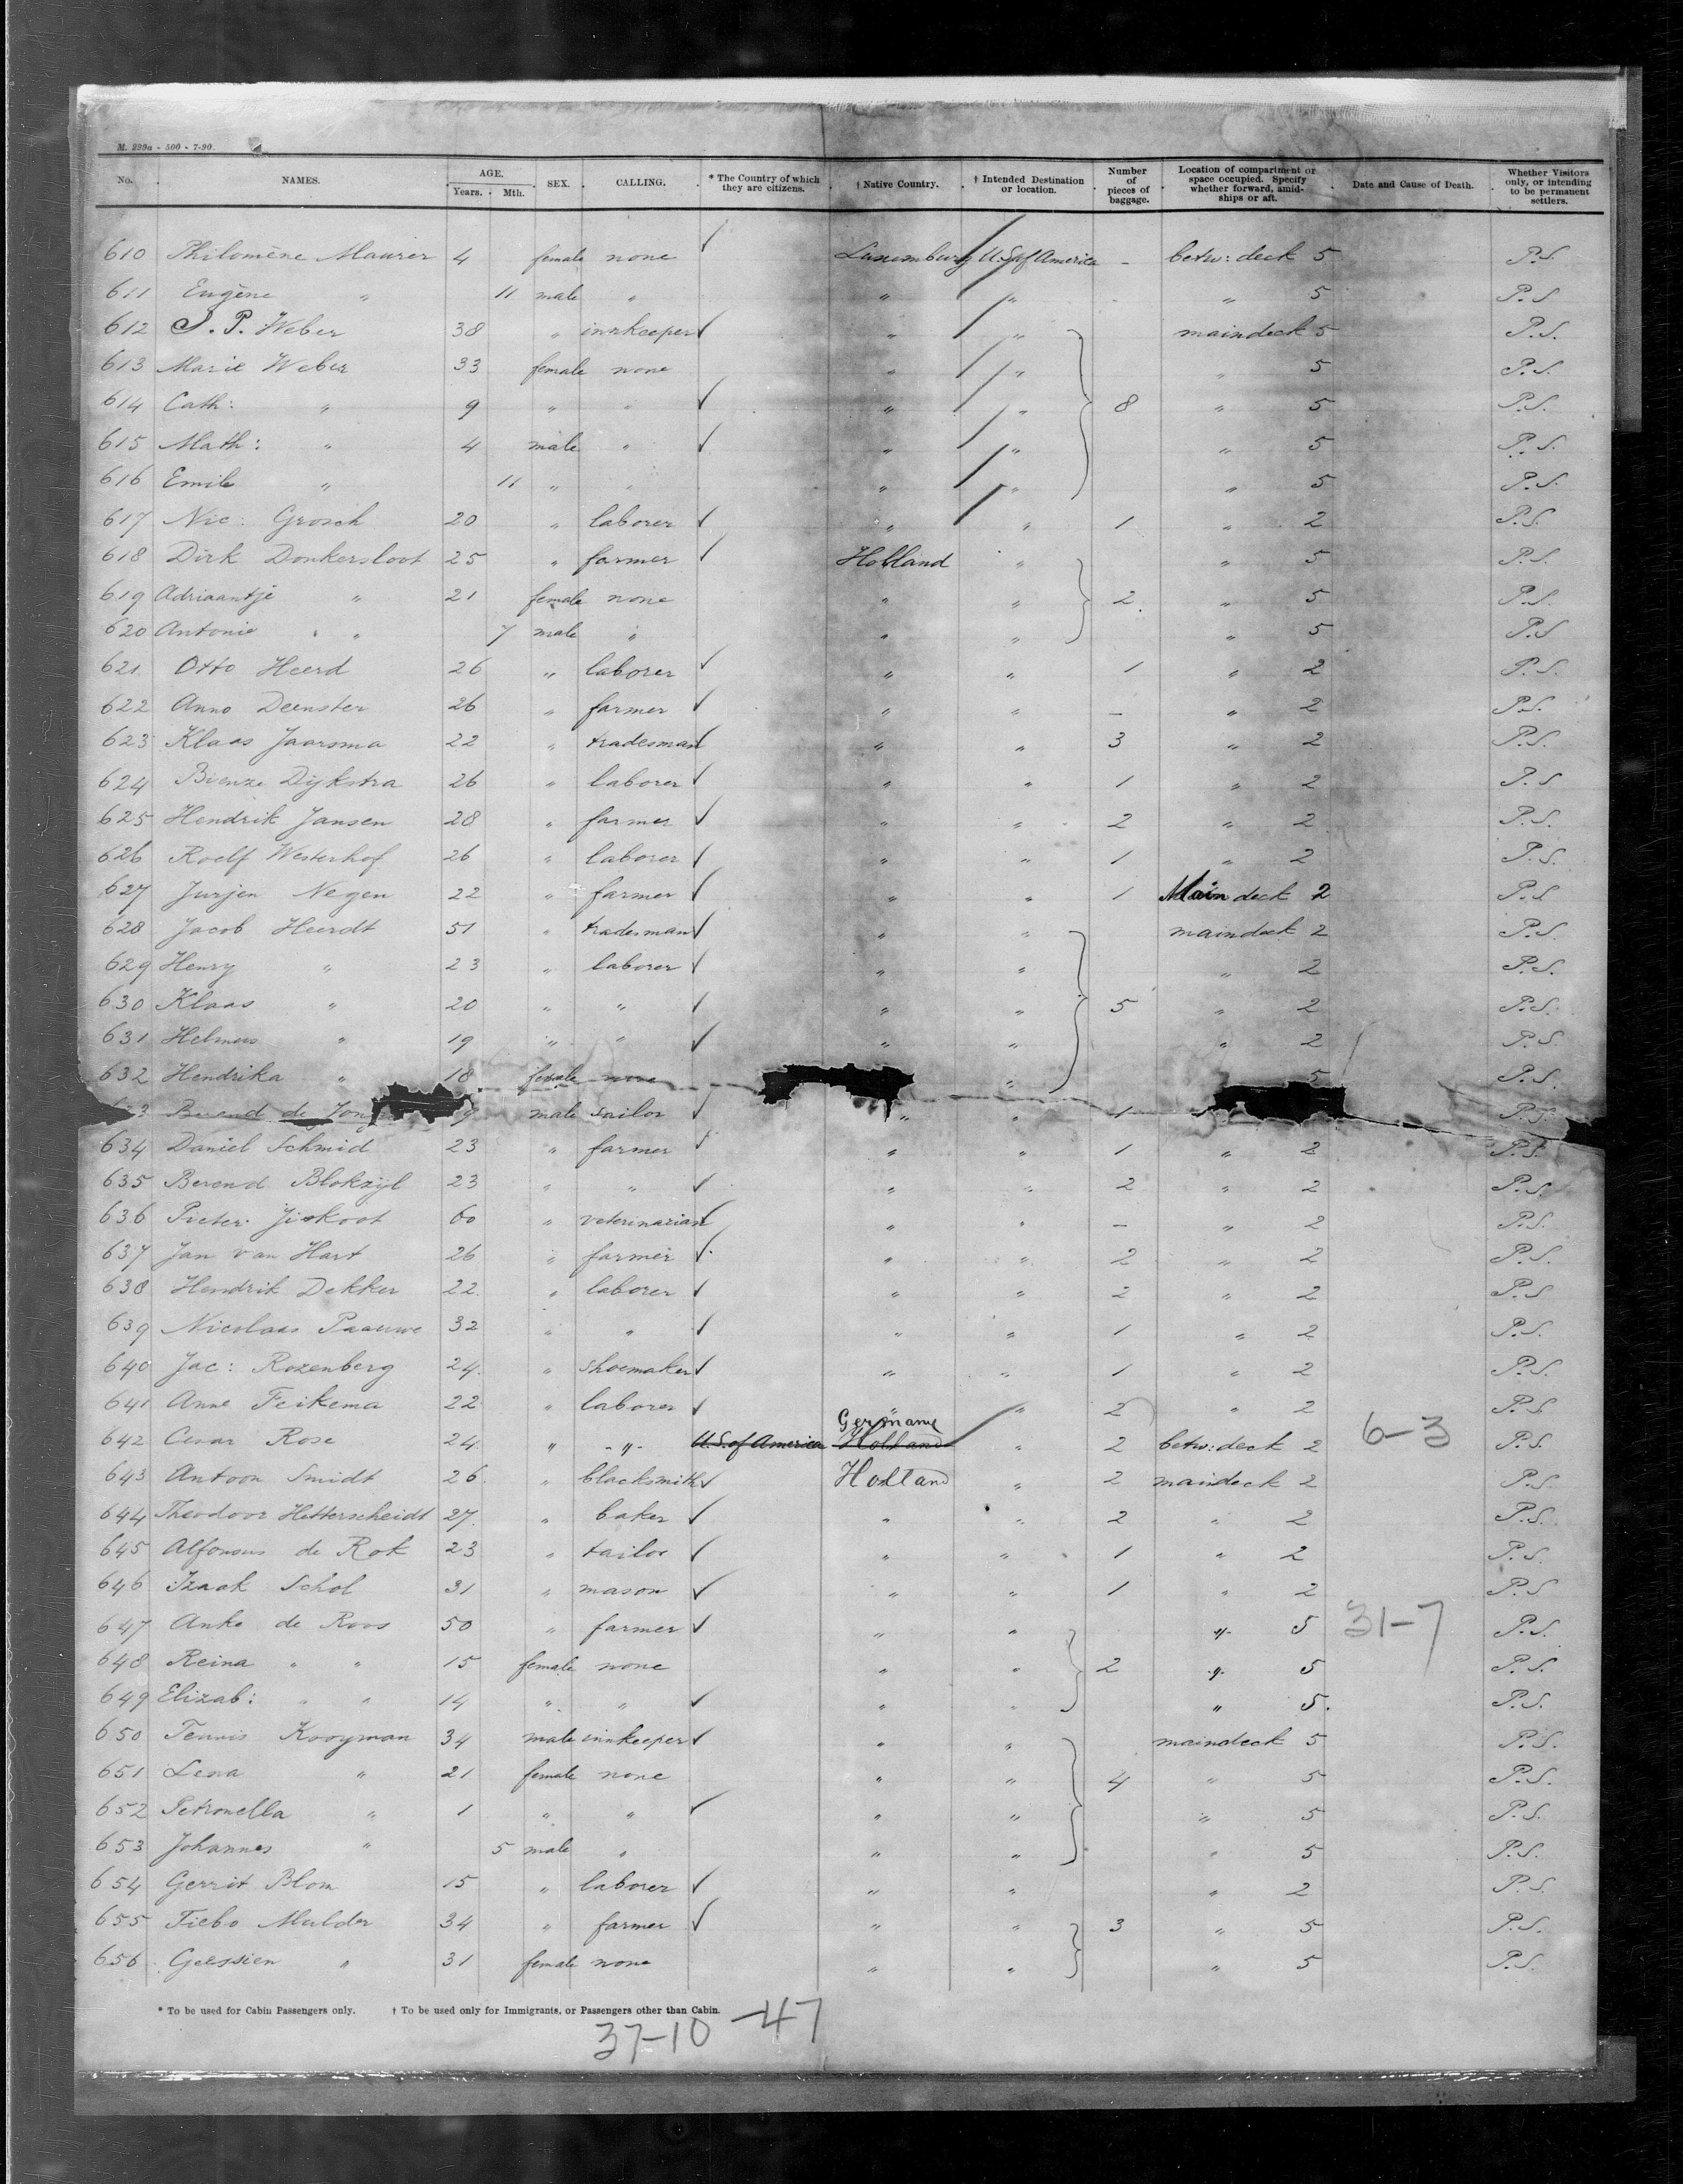 M. 299a - 500 - 7-90.
No. NAMES. AGE. Years. Mth. SEX. CALLING. * The Country of which they are citizens. † Native Country. † Intended Destination or location. Number of pieces of baggage. Location of compartment or space occupied. Specify whether forward, amidships or aft. Date and Cause of Death. Whether Visitors only, or intending to be permanent settlers.
610 Philomène Maurer 4 female none ✓ Luxemburg U.S of America - betw: deck 5 P.S.
611 Eugène " 11 male " " " " 5 P.S
612 S. P. Weber 38 " innkeeper ✓ " " maindeck 5 P.S.
613 Marie Weber 33 female none " " " 5 P.S.
614 Cath: " 9 " " ✓ " " 8 " 5 P.S.
615 Math: " 4 male " ✓ " " " 5 P.S.
616 Emile " 11 " " " " " 5 P.S.
617 Nic: Grosch 20 " laborer ✓ " " 1 " 2 P.S.
618 Dirk Donkersloot 25 " farmer ✓ Holland " " 5 P.S.
619 Adriaantje " 21 female none " " 2 " 5 P.S.
620 Antonie " 7 male " " " " 5 P.S
621 Otto Heerd 26 " laborer ✓ " " 1 " 2 P.S.
622 Anno Deenster 26 " farmer ✓ " " - " 2 P.S.
623 Klaas Jaarsma 22 " tradesman ✓ " " 3 " 2 P.S.
624 Bienze Dijkstra 26 " laborer ✓ " " 1 " 2 P.S
625 Hendrik Jansen 28 " farmer ✓ " " 2 " 2 P.S.
626 Roelf Westerhof 26 " laborer ✓ " " 1 " 2 P.S.
627 Jurjen Negen 22 " farmer ✓ " " 1 Main deck 2 P.S
628 Jacob Heerdt 51 " tradesman ✓ " " maindeck 2 P.S.
629 Henry " 23 " laborer ✓ " " " 2 P.S.
630 Klaas " 20 " " ✓ " " 5 " 2 P.S.
631 Helmers " 19 " " ✓ " " " 2 P.S.
632 Hendrika " 18 female none " 5 P.S.
3 Berend de Jong 9 male sailor ✓ " " 1 P.S.
634 Daniel Schmid 23 " farmer ✓ " " 1 " 2 P.S.
635 Berend Blokzijl 23 " " ✓ " " 2 " 2 P.S.
636 Pieter Jiskoot 60 " veterinarian ✓ " " - " 2 P.S.
637 Jan van Hart 26 " farmer ✓ " " 2 " 2 P.S.
638 Hendrik Dekker 22 " laborer ✓ " " 2 " 2 P.S
639 Nicolaas Paauwe 32 " " ✓ " " 1 " 2 P.S.
640 Jac: Rozenberg 24 " shoemaker ✓ " " 1 " 2 P.S.
641 Anne Feikema 22 " laborer ✓ " " 2 " 2 P.S
Germany
642 Cesar Rose 24 " " U.S. of America Holland " 2 betw: deck 2 6-3 P.S.
643 Antoon Smidt 26 " blacksmith ✓ Holland " 2 maindeck 2 P.S
644 Theodoor Hetterscheidt 27 " baker ✓ " " 2 " 2 P.S.
645 Alfonsus de Rok 23 " tailor ✓ " " 1 " 2 P.S.
646 Izaak Schol 31 " mason ✓ " " 1 " 2 P.S
647 Anke de Roos 50 " farmer ✓ " " " 5 31-7 P.S.
648 Reina " " 15 female none " " 2 " 5 P.S.
649 Elizab: " " 14 " " ✓ " " " 5. P.S.
650 Teunis Kooyman 34 male innkeeper ✓ " " maindeck 5 P.S.
651 Lena " 21 female none " " 4 " 5 P.S.
652 Petronella " 1 " " ✓ " " " 5 P.S.
653 Johannes " 5 male " " " " 5 P.S.
654 Gerrit Blom 15 " laborer ✓ " " " 2 P.S.
655 Tiebo Mulder 34 " farmer ✓ " " 3 " 5 P.S.
656 Geessien " 31 female none " " " 5 P.S.
* To be used for Cabin Passengers only. † To be used only for Immigrants, or Passengers other than Cabin.
37-10 -47